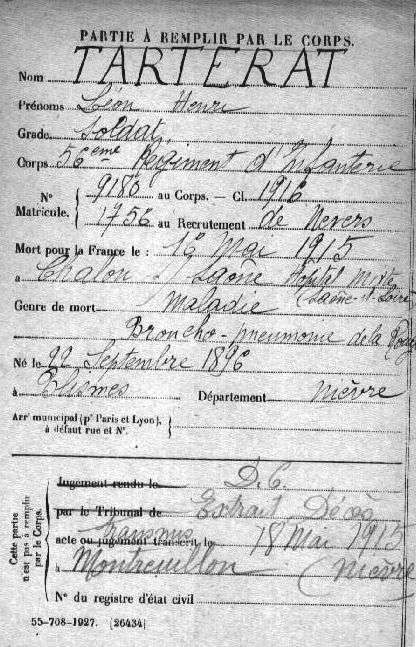 PARTIE À REMPLIR PAR LE CORPS.
Nom TARTERAT
Prénoms Léon Henri
Grade Soldat
Corps 56eme Régiment d'Infanterie
N° Matricule. { 9180 au Corps. — Cl. 1916
1756 au Recrutement de Nevers
Mort pour la France le : 16 Mai 1915
à Chalon s/ Saône Hôpital Mixte
(Saône-et-Loire
Genre de mort Maladie
Broncho-pneumonie de la Roug
Né le 22 Septembre 1896
à Département Nièvre
Arr{t} municipal (p{r} Paris et Lyon), à défaut rue et N°.
Cette partie n'est pas à remplir par le Corps.
Jugement rendu le D.C.
par le Tribunal de Extrait Décès
acte ou jugement transcrit le transmis 18 Mai 1915
à Montreuillon (Nièvre
N° du registre d'état civil
55-708-1927. [26434]